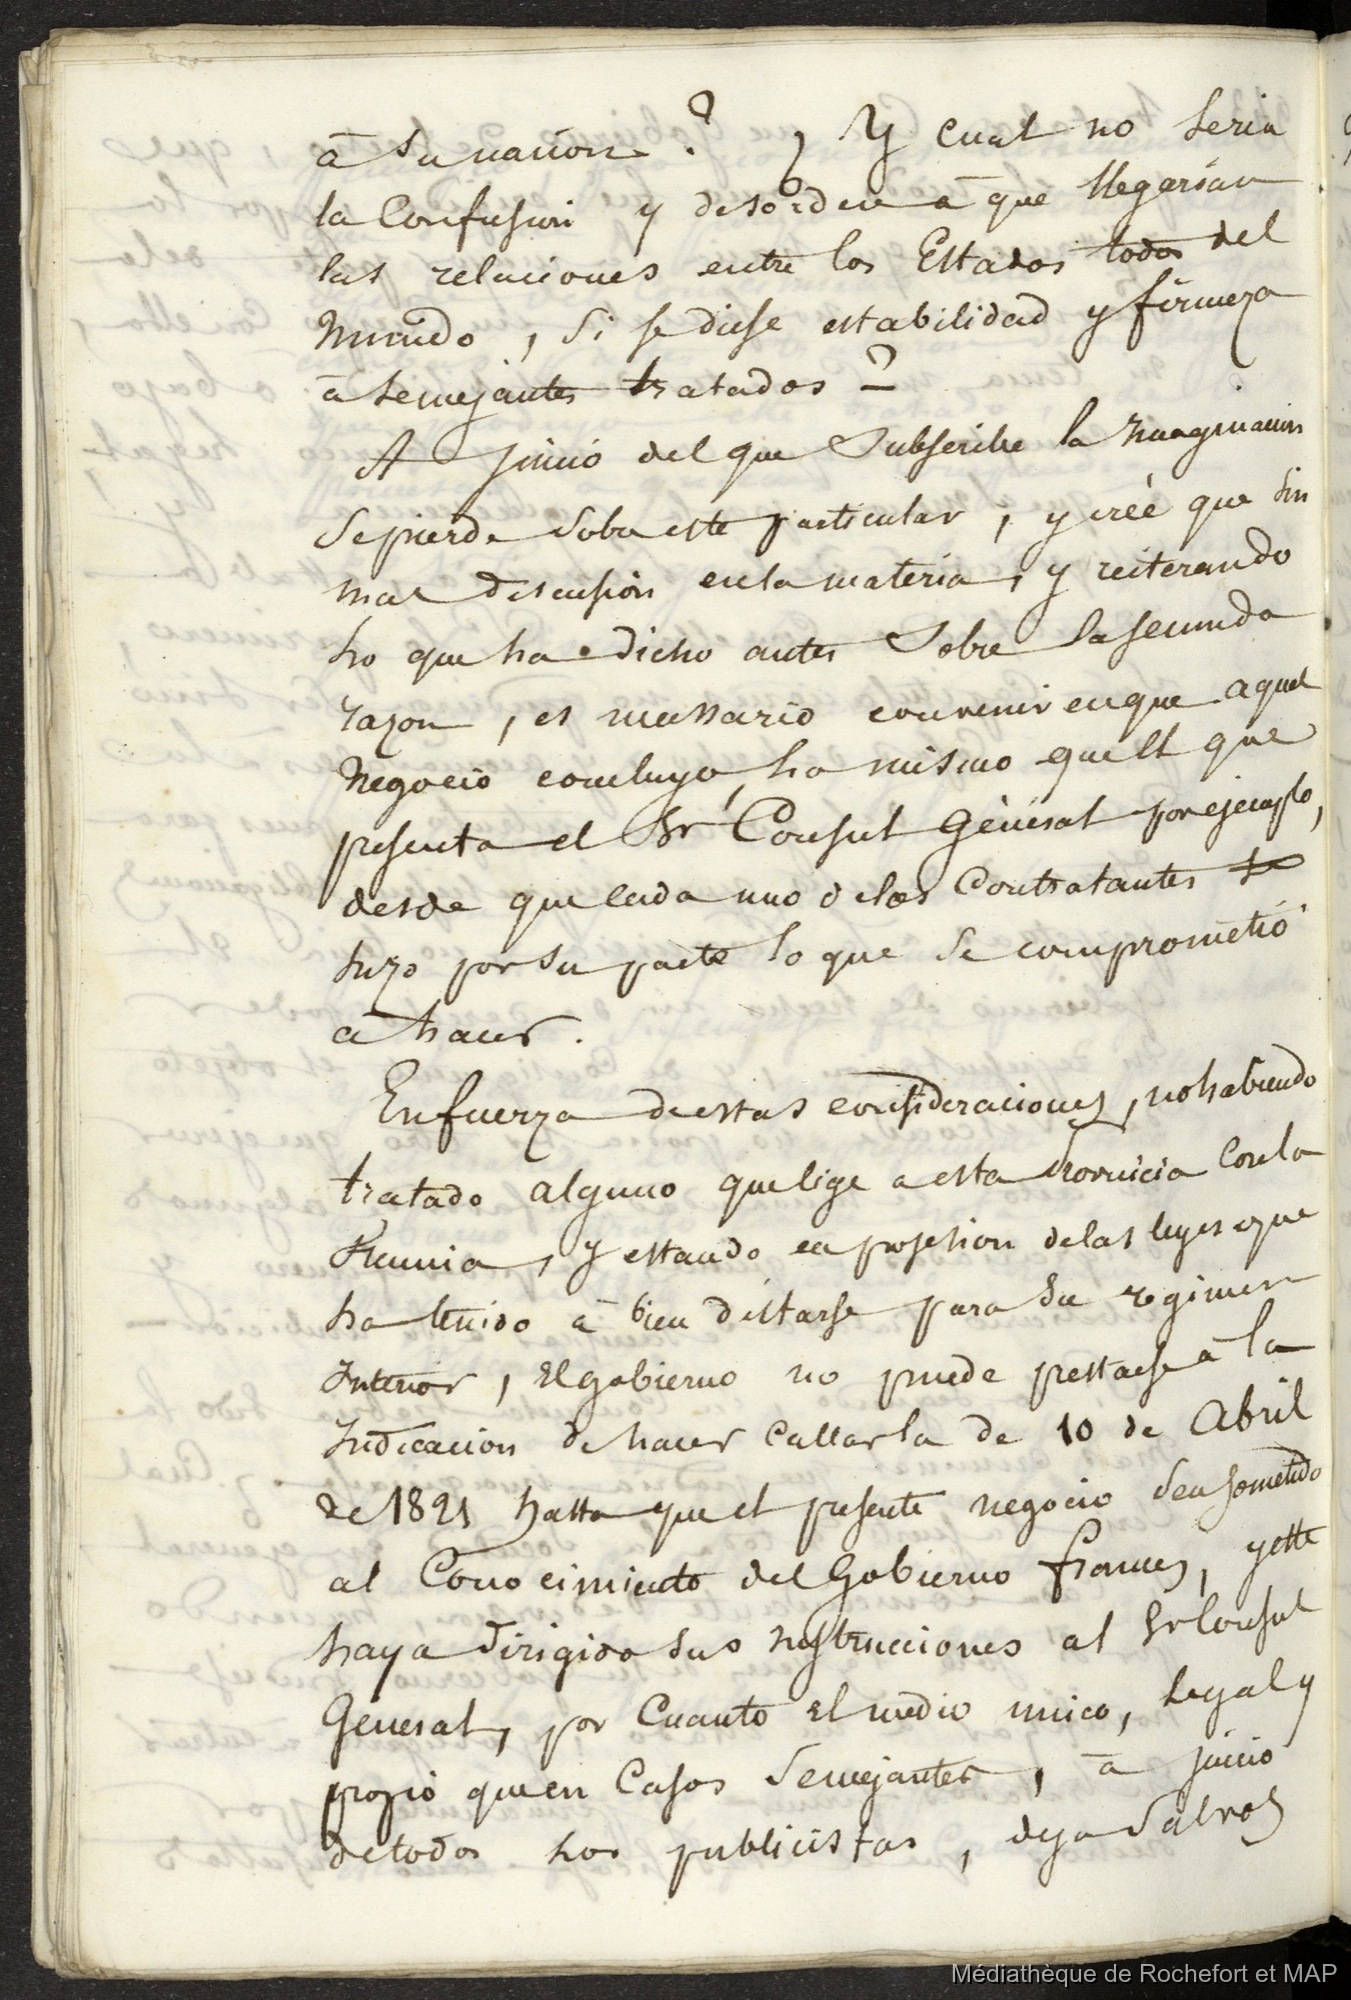 à su nacion ? ¿ Y cual no seria
la Confusion y desorden à que llegarian
las relaciones entre los Estados todos del
Mundo, si se diese estabilidad y firmeza
à semejantes tratados ?
A juicio del que Subscribe la Imaginacion
se pierde sobre este particular, y creé que sin
mas discusion en la materia, y reiterando
lo que ha dicho antes Sobre la segunda
razon, es necessario convenir en que aquel
Negocio concluyó, lo mismo que el que
presenta el Sr Consul Géneral por ejemplo,
desde que cada uno de los Contratantes
hizo por su parte lo que se comprometió
a hacer.
En fuerza de estas consideraciones, no habiendo
tratado alguno que lige a esta Provincia con la
Francia, y estando en posesion de las leyes que
ha tenido à bien dictarse para su regimen
Interior, El gobierno no puede prestarse à la
Indicacion de hacer callar la de 10 de Abril
de 1821 hasta que el presente negocio sea sometido
al Conocimiento del Gobierno frances, y este
haya dirigido sus Instrucciones al Sr Consul
General, por Cuanto El medio unico, legal y
propio que en Casos semejantes, à juicio
de todos los publicistas, deja salvos
Médiathèque de Rochefort et MAP